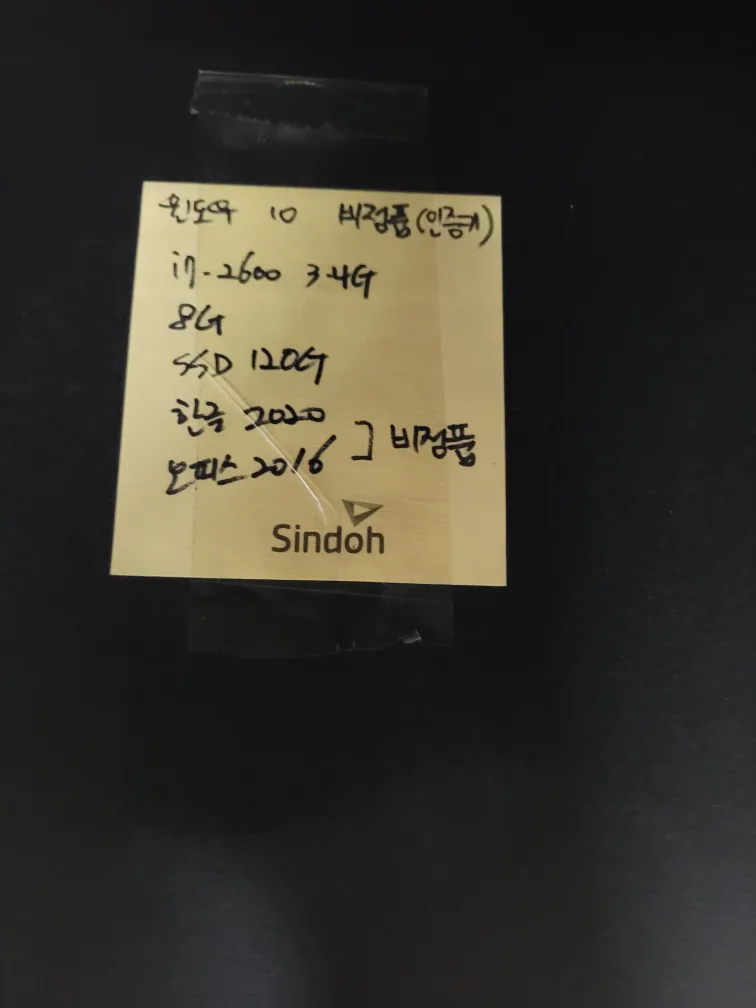 윈도우 10 비정품(인증해)
i7-2600 3.4G
8G
SSD 120G
한글 2020
오피스 2016 ] 비정품
Sindoh